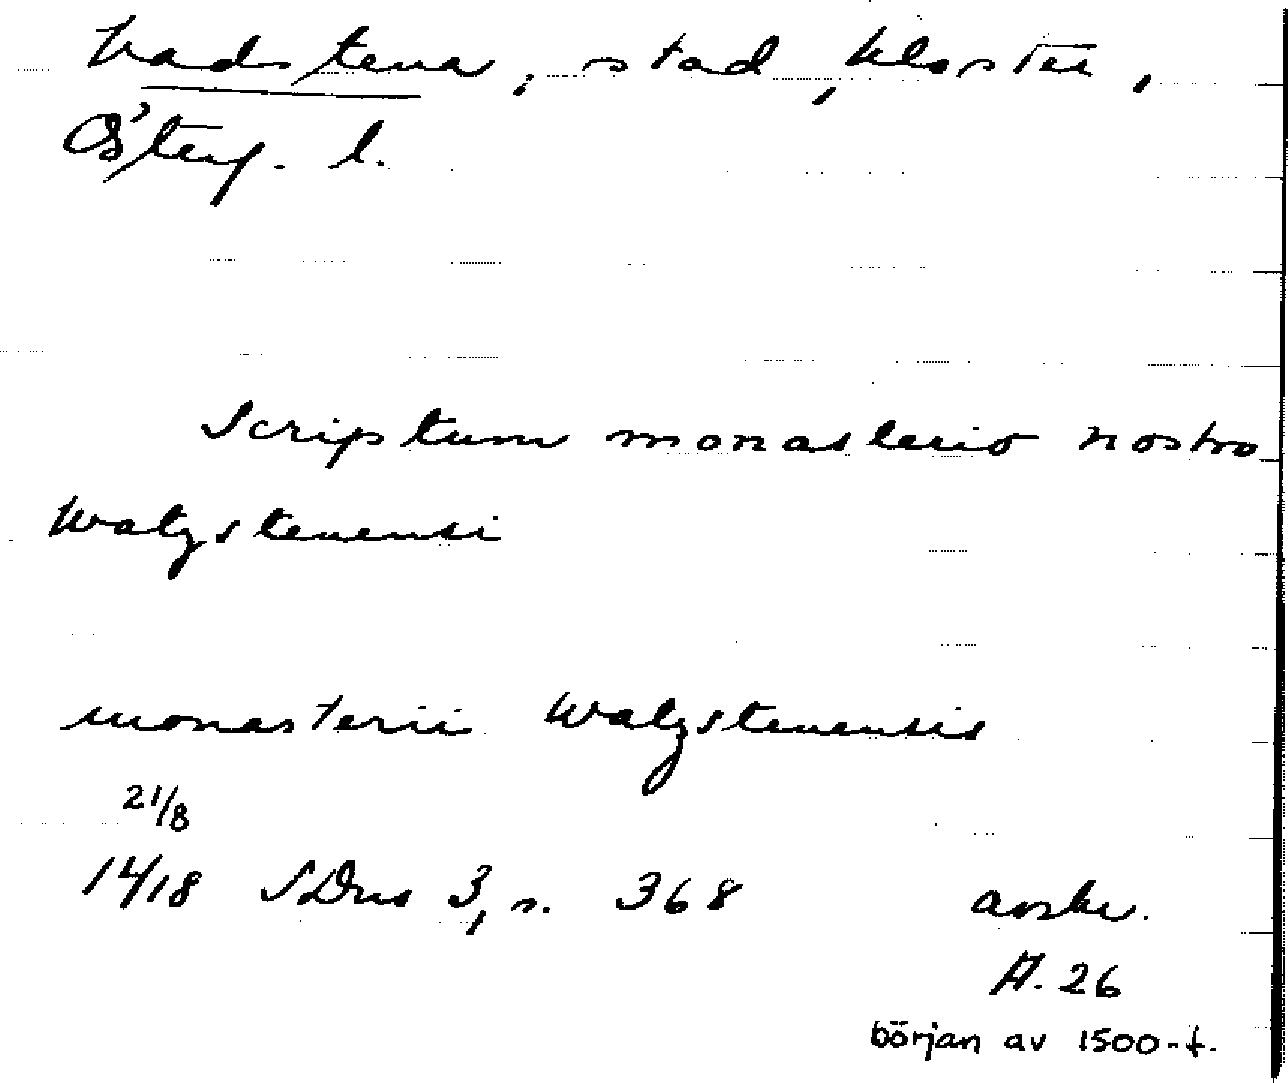 Vadstena, stad, kloster,
Österg. l.
Scriptum monasterio nostro
Watzstenensi
monasterii Watzstenensis
21/8
1418 SDns 3, s. 368 avskr.
A. 26
början av 1500-t.